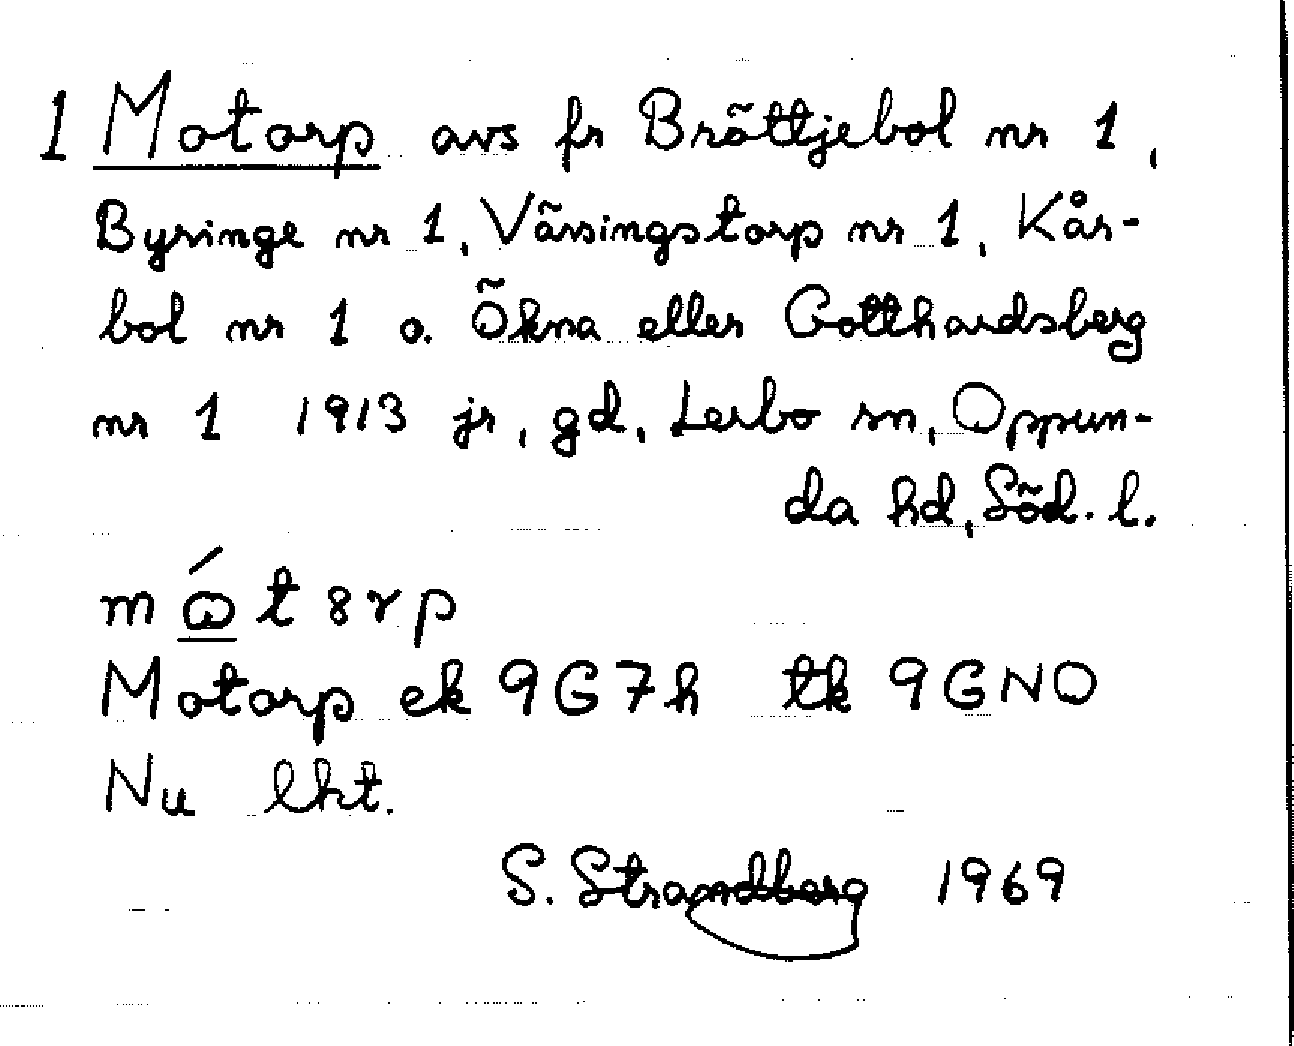 1 Motorp avs fr Bröttjebol nr 1,
Byringe nr 1, Väsingstorp nr 1, Kår-
bol nr 1 o. Ökna eller Gotthardsberg
nr 1 1913 jr, gd, Lerbo sn, Oppun-
da hd, Söd. l.
t8rp
Motorp ek 9G7h tk 9GNO
Nu lht.
S. Strandberg 1969